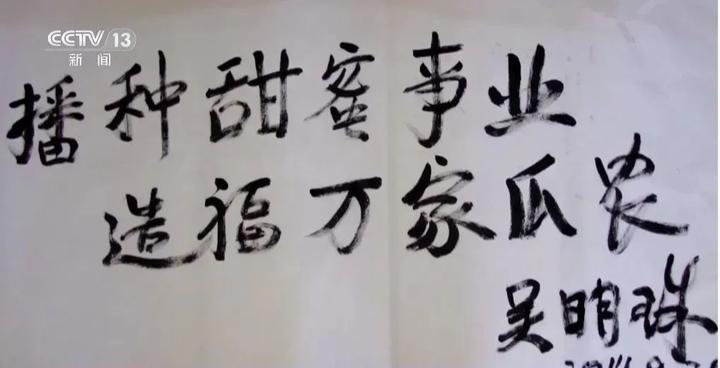 CCTV 13
新闻
播种甜蜜事业
造福万家瓜农
吴明珠